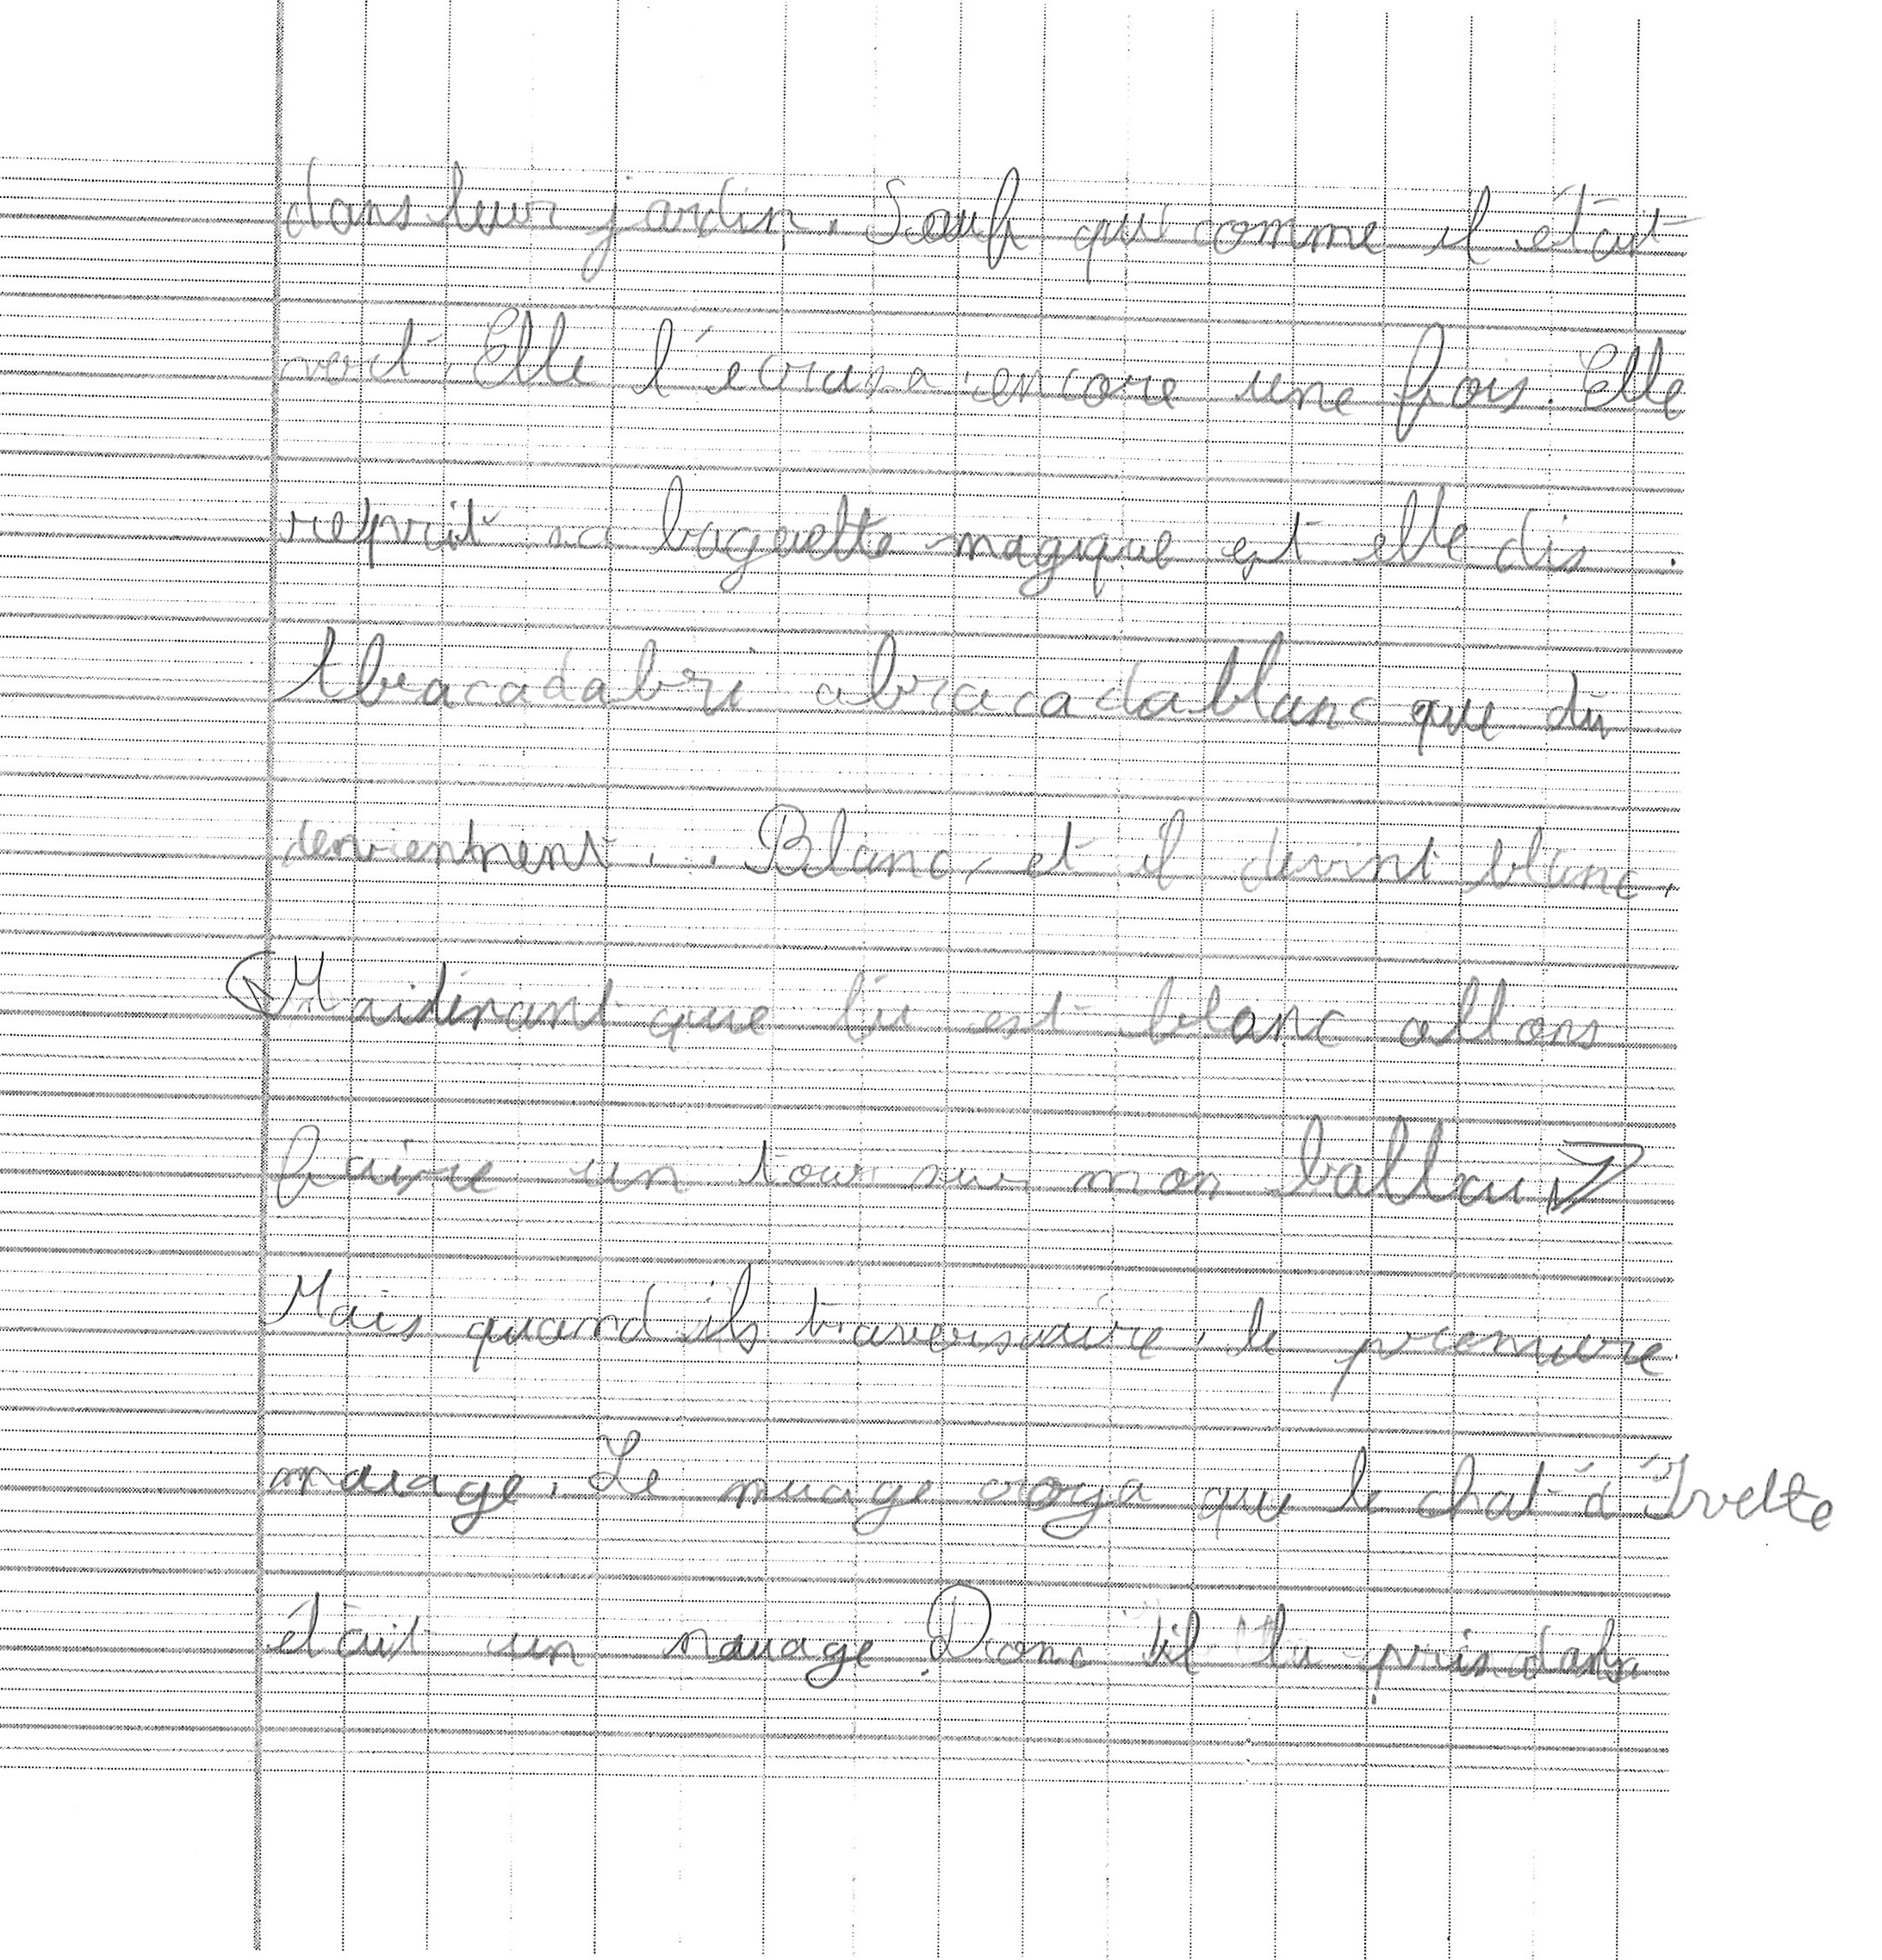 dans leur jardin. Sauf que comme il était
vert. Elle l'écrasa encore une fois. Elle
reprit sa baguette magique est elle dis :
Abracadabri abracadablanc que tu
devientnent... Blanc, et il devint blanc.
«Maidenant que tu est blanc allons
faire un tour sur mon ballai»
Mais quand ils traversaire, le premiere
nuage. Le nuage voya que le chat à Ivette
était un nuage. Donc il le pris dans